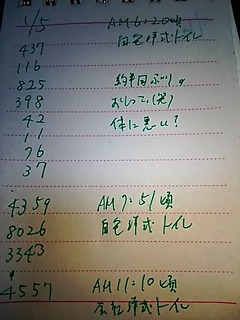 1/5 AM 6:20頃
437 自宅洋式トイレ
116
825 約半日ぶり。
398 おしっこ(発)
42 体に悪い?
11
76
37
4359 AM 7:51頃
8026 自宅洋式トイレ
3343
4557 AM 11:10頃
会社洋式トイレ